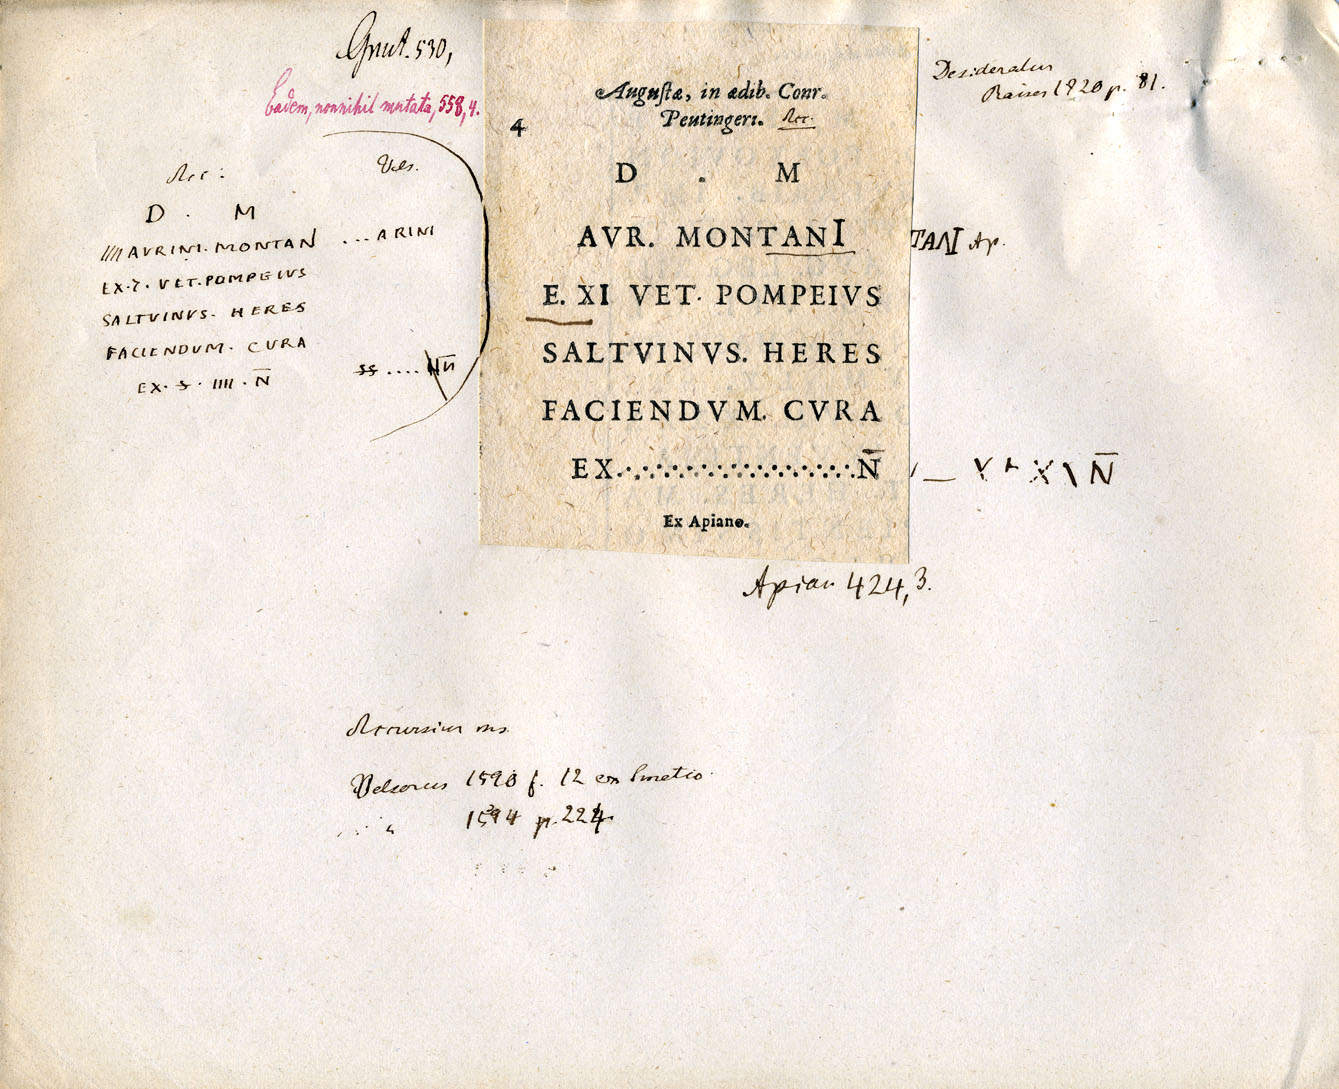 Grut. 530,
Eadem, nonnihil mutata, 558, 4.
Desideratur
Raiser 1820 p. 81.
4
Augustæ, in ædib. Conr.
Peutingeri. Acc.
D . M
AVR. MONTANI
E. XI VET. POMPEIVS
SALTVINVS. HERES
FACIENDVM. CVRA
EX..................N̅
Ex Apiano.
Acc: Vels.
D . M
//// AVRINI. MONTAN ... ARINI
EX. 7. VET. POMPEIUS
SALTVINVS. HERES
FACIENDUM. CURA
EX. S. IIII. N̅ ss .... N̅
TANI Ap.
N̅
Apian 424, 3.
Accursius ms.
Velserus 1590 f. 12 ex Smetio.
1594 p. 224.